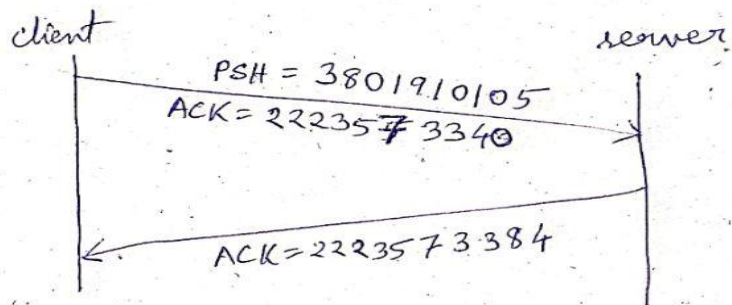 client
server
PSH = 3801910105
ACK = 2223573340
ACK = 2223573384